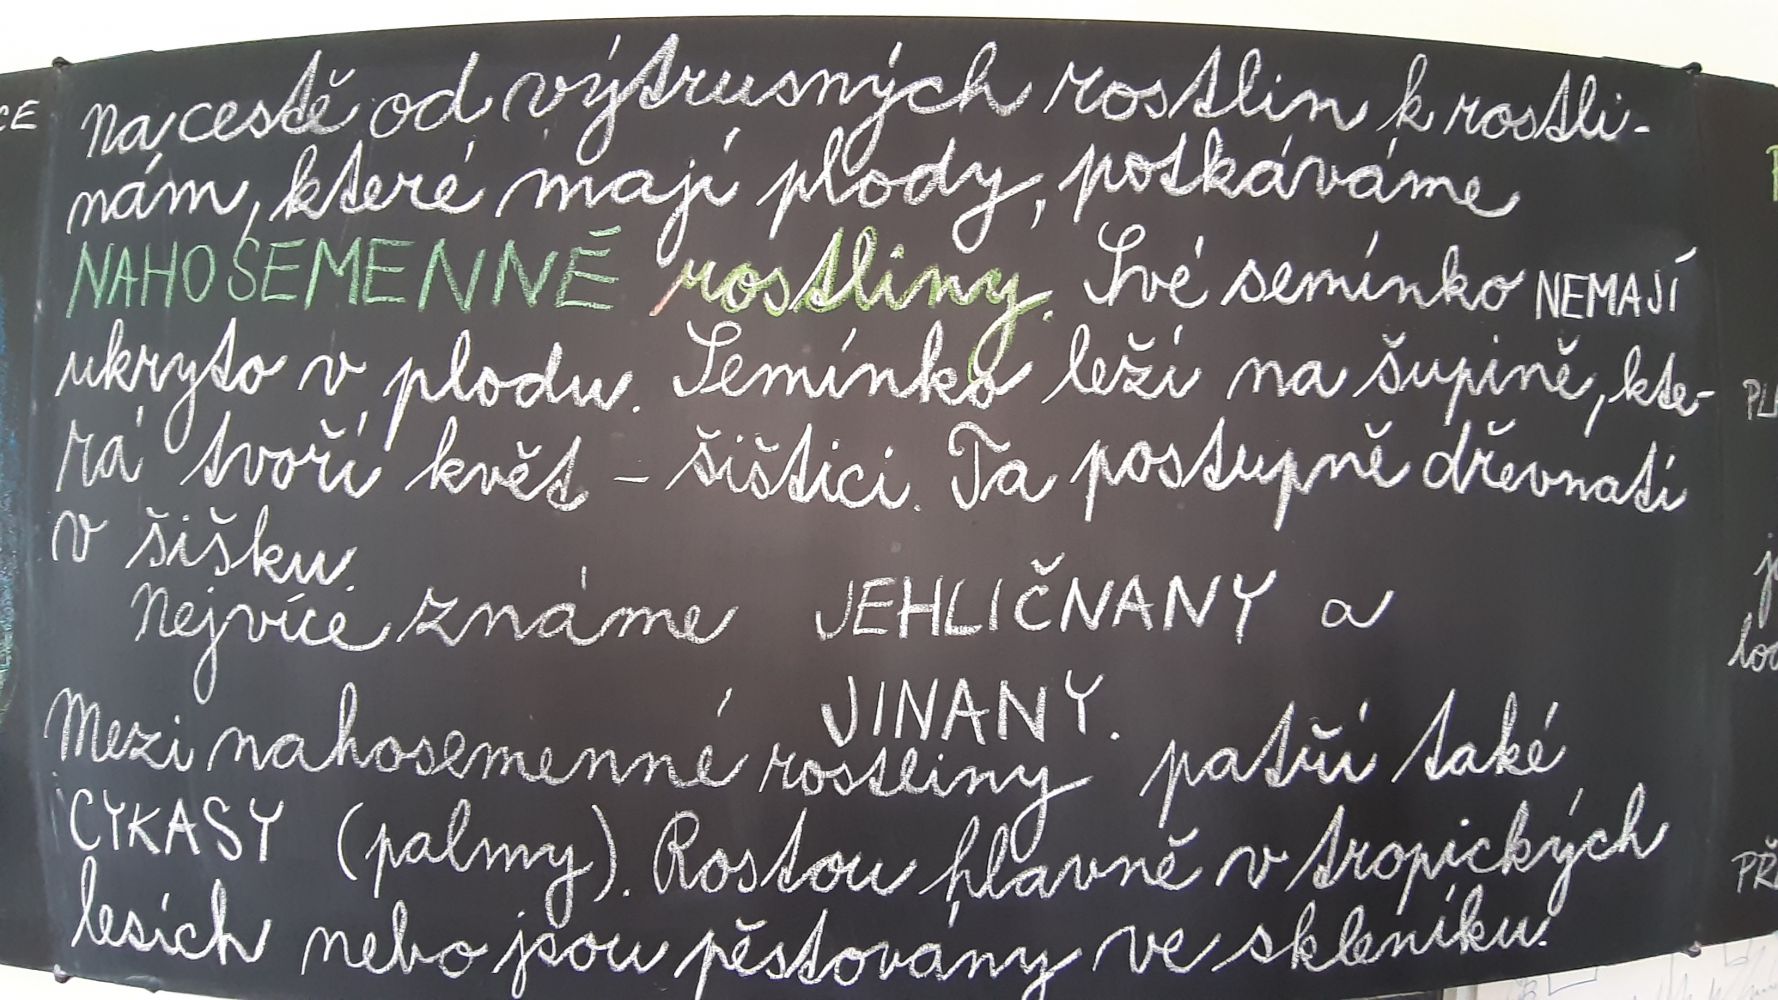 Na cestě od výtrusných rostlin k rostli-
nám, které mají plody, potkáváme
NAHOSEMENNÉ rostliny. Své semínko NEMAJÍ
ukryto v plodu. Semínko leží na šupině, kte-
rá tvoří květ – šištici. Ta postupně dřevnatí
v šišku.
Nejvíce známe JEHLIČNANY a
JINANY.
Mezi nahosemenné rostliny patří také
CYKASY (palmy). Rostou hlavně v tropických
lesích nebo jsou pěstovány ve skleníku.